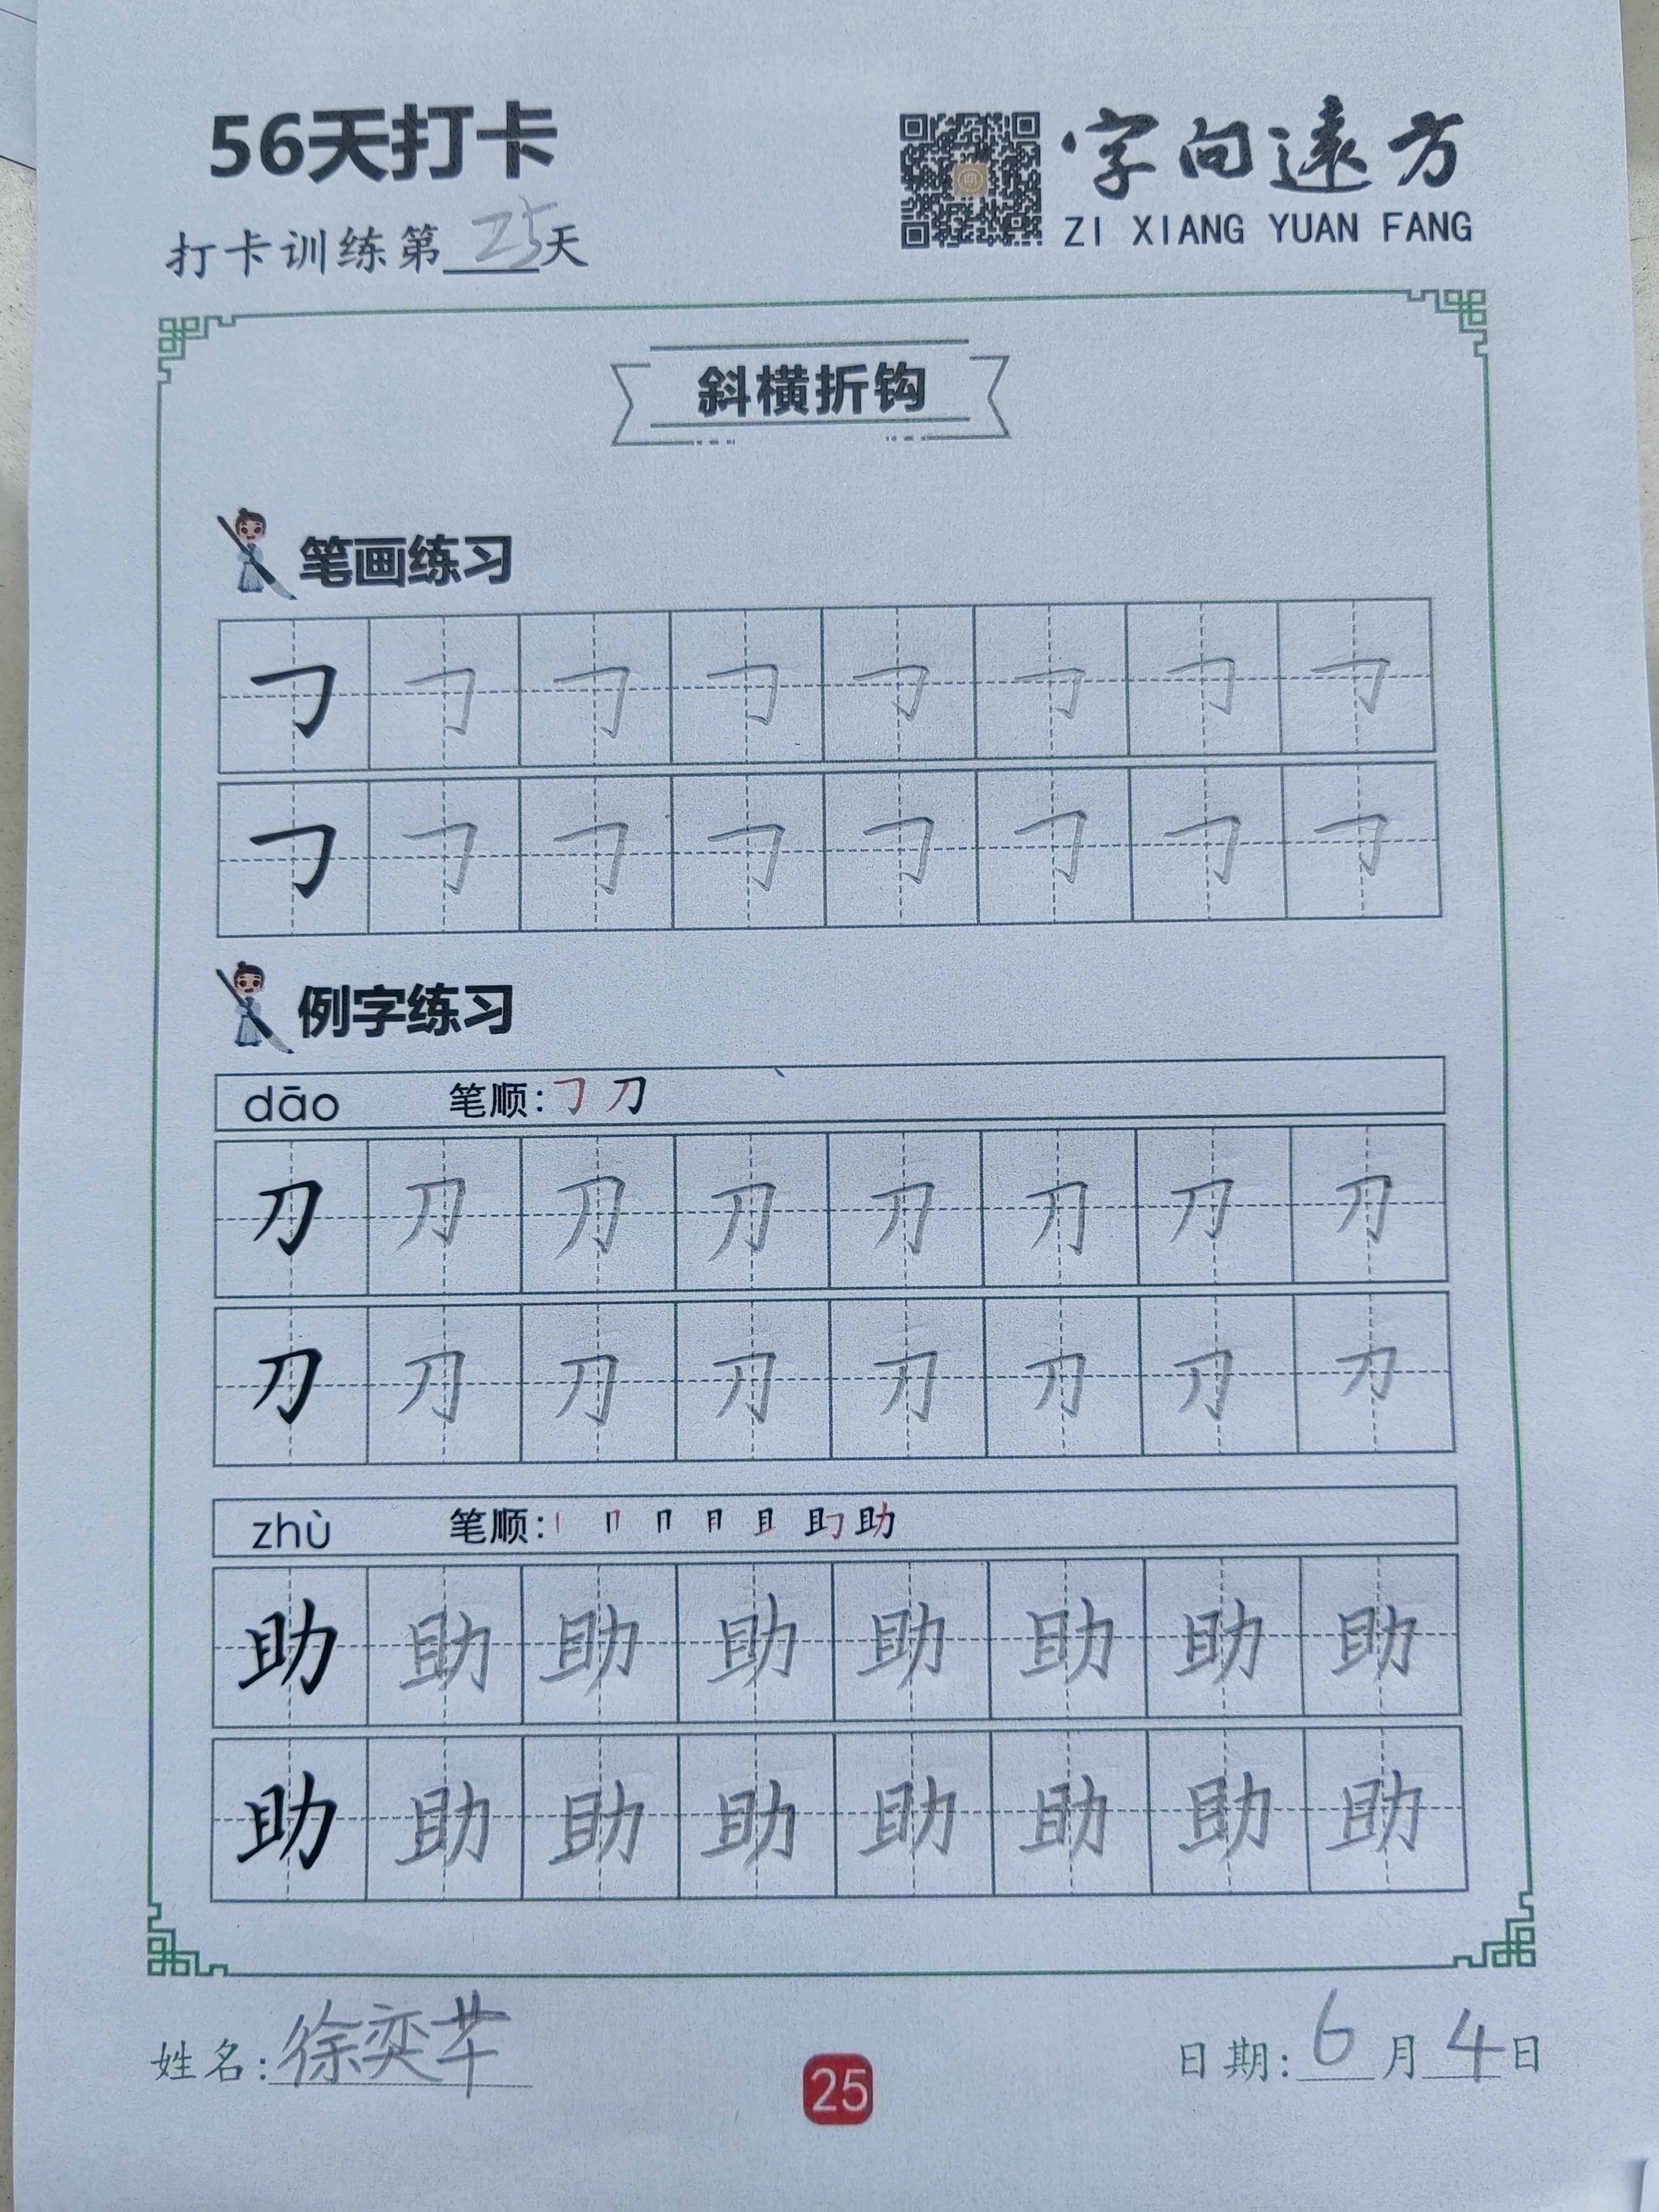 56天打卡
字向遠方
ZI XIANG YUAN FANG
打卡训练第25天
斜横折钩
笔画练习
𠃌 𠃌 𠃌 𠃌 𠃌 𠃌 𠃌 𠃌
𠃌 𠃌 𠃌 𠃌 𠃌 𠃌 𠃌 𠃌
例字练习
dāo 笔顺: 𠃌 刀
刀 刀 刀 刀 刀 刀 刀 刀
刀 刀 刀 刀 刀 刀 刀 刀
zhù 笔顺: 助
助 助 助 助 助 助 助 助
助 助 助 助 助 助 助 助
姓名: 徐奕芊
日期: 6月4日
25